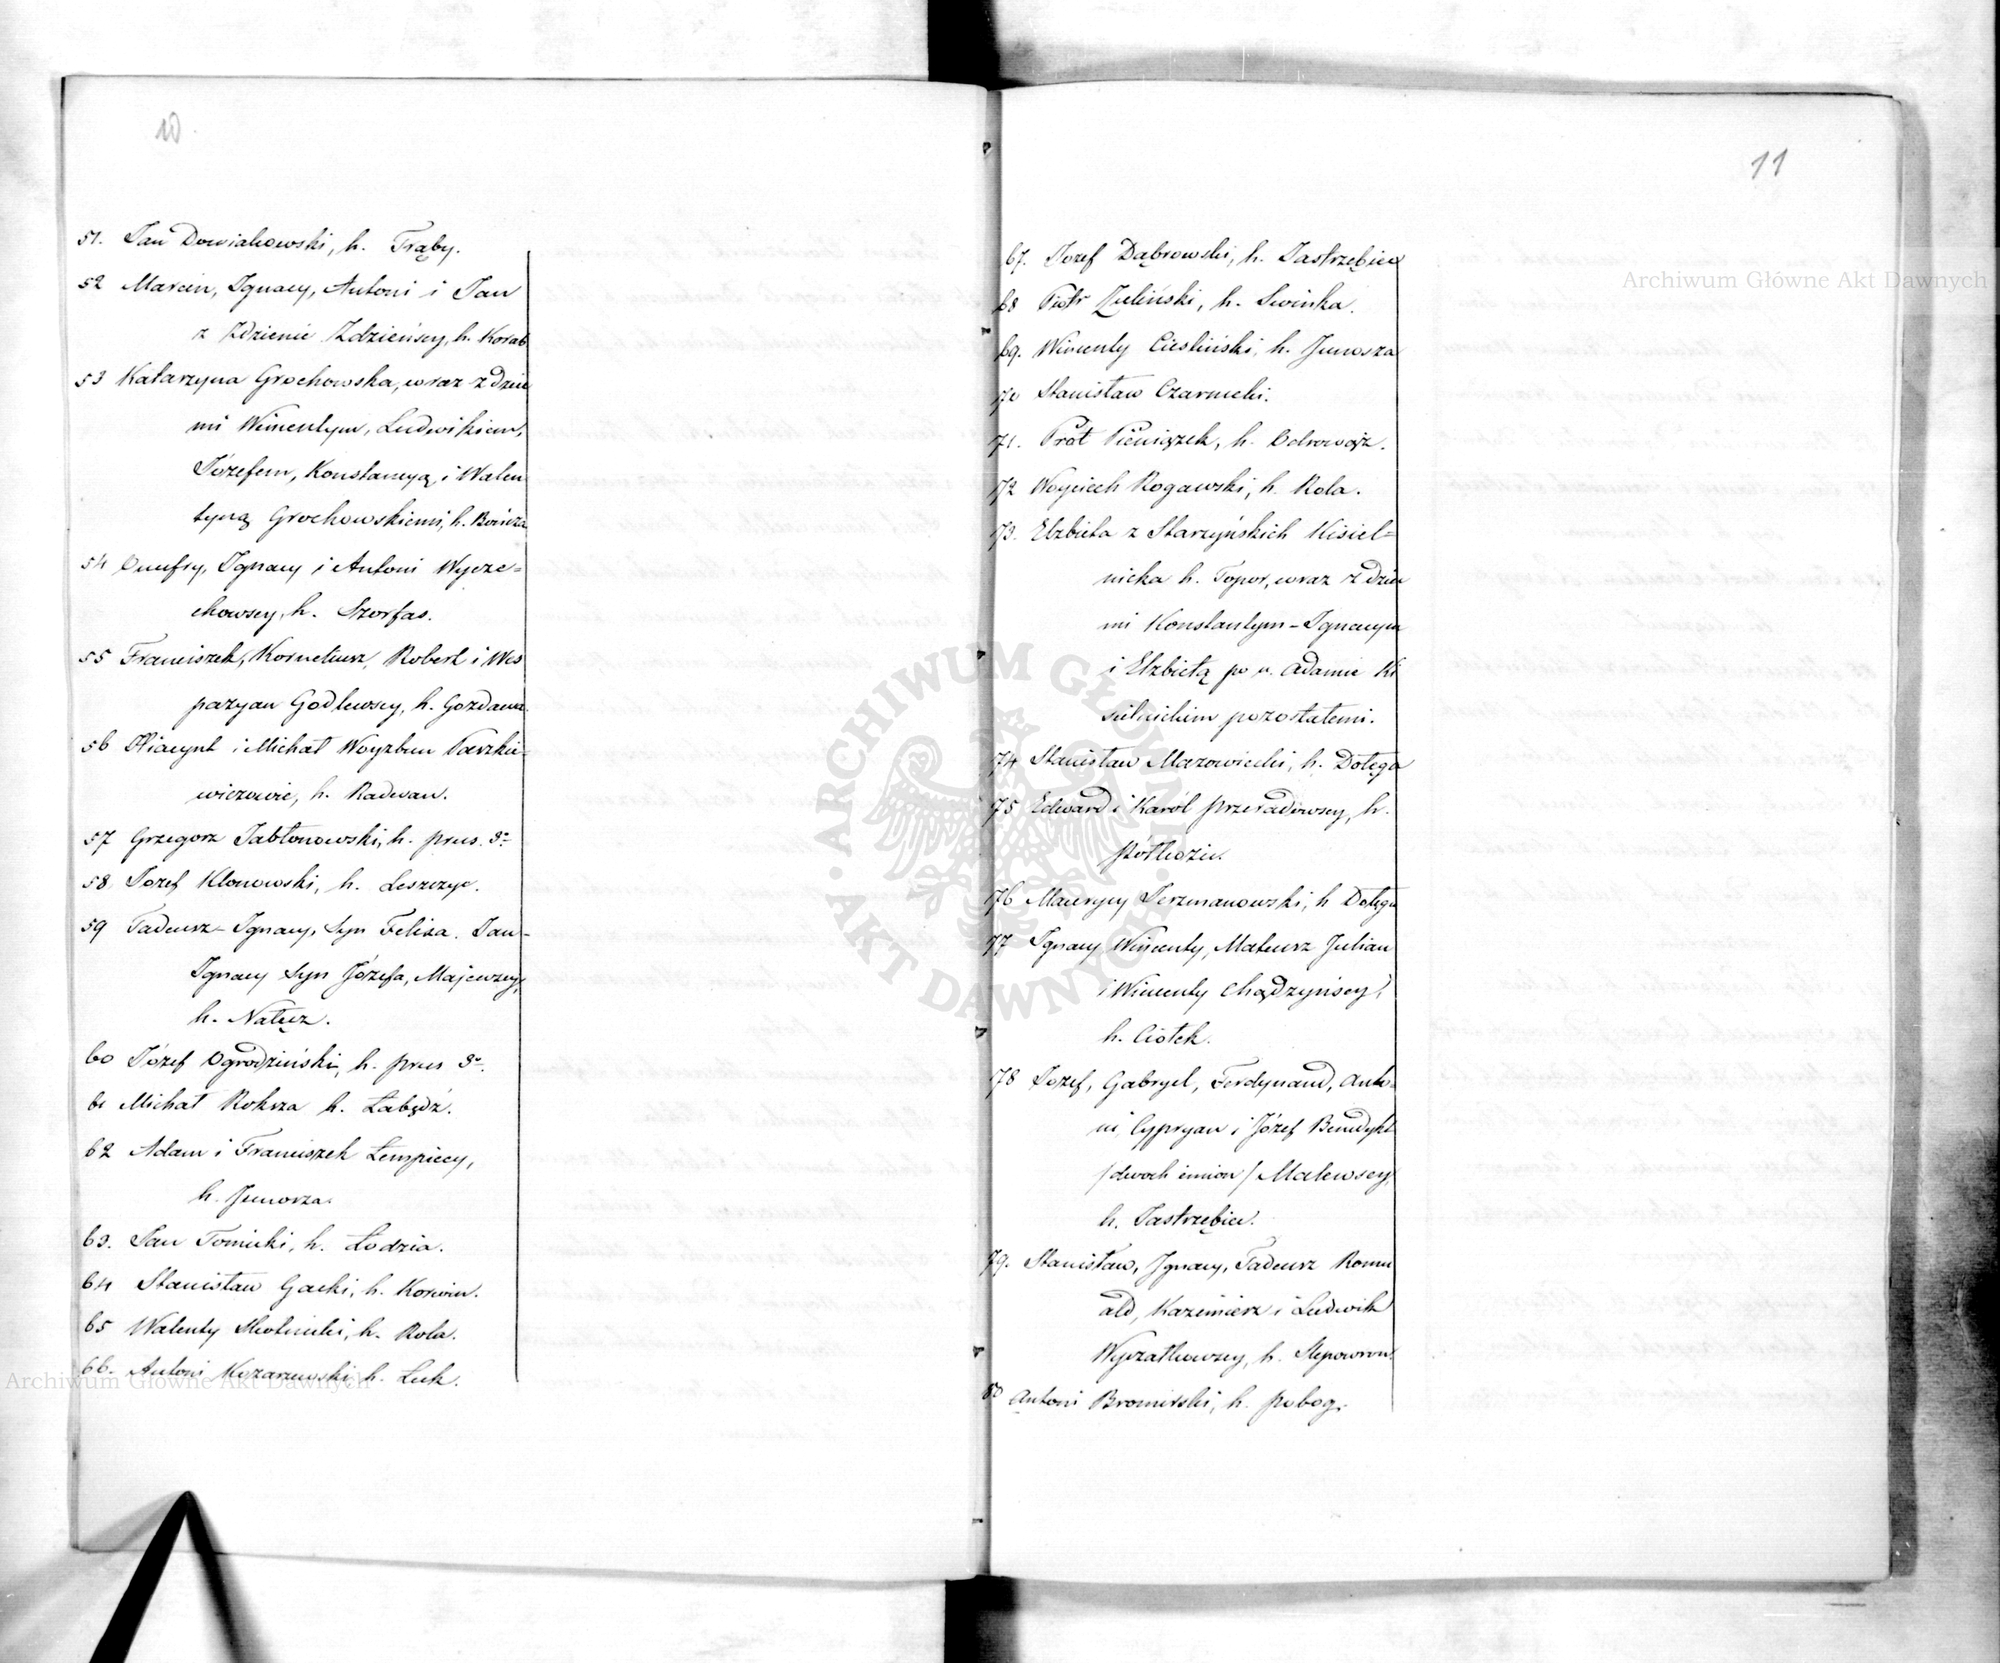 10
51. Jan Dowiakowski, h. Trąby.
52 Marcin, Ignacy, Antoni i Jan
z Zdzienie Zdzieńscy, h. Korab
53 Katarzyna Grochowska, wraz z dzie
mi Wincentym, Ludwikiem,
Józefem, Konstancyą i Walen
tyną Grochowskiemi, h. Bończa
54 Onufry, Ignacy i Antoni Wycze-
chowscy, h. Szorfas.
55 Franciszek, Korneliusz, Robert i Wes
pazyan Godlewscy, h. Gozdawa.
56 Hiacynt i Michał Woyzbun Paszkie-
wiczowie, h. Radwan.
57 Grzegorz Jabłonowski, h. prus. 3º
58. Jozef Klonowski, h. Leszczyc.
59 Tadeusz-Ignacy, Syn Felixa. Jan-
Ignacy Syn Józefa, Majewscy,
h. Nałęcz.
60 Józef Ogrodziński, h. prus 3º.
61 Michał Roksza h. Łabędź.
62 Adam i Franciszek Łempiccy,
h. Junosza.
63. Jan Tomicki, h. Łodzia.
64 Stanisław Gacki, h. Korwin.
65 Walenty Skotnicki, h. Rola.
66. Antoni Kozarzewski h. Łuk.
11
67. Jozef Dąbrowski, h. Jastrzębiec
68 Piotr Zieliński, h. Swinka.
69. Wincenty Ciesliński, h. Junosza
70 Stanisław Czarnecki.
71. Prot Pieniążek, h. Odrowąż.
72 Woyciech Rogawski, h. Rola.
73. Elzbieta z Starzyńskich Kisiel-
nicka h. Topor, wraz z dzie
mi Konstantym-Ignacym
i Elzbietą po n. Adamie Ki
sielnickim pozostałemi.
74 Stanisław Mazowiecki, h. Dołęga
75 Edward i Karól Przeradowscy, h.
Półkozic.
76 Maurycy Jerzmanowski, h Dołęga
77 Ignacy Wincenty, Mateusz Julian
i Wincenty Chądzyńscy,
h. Ciołek.
78 Jozef, Gabryel, Ferdynand, Anto-
ni, Cypryan i Józef Benedykt
/dwoch imion/ Malewscy,
h. Jastrzębiec.
79. Stanisław, Ignacy, Tadeusz Romu
ald, Kazimierz i Ludwik
Wyczałkowscy, h. Slepowron.
80 Antoni Bromirski, h. pobog.
Archiwum Główne Akt Dawnych
Archiwum Główne Akt Dawnych
ARCHIWUM GŁÓWNE
AKT DAWNYCH